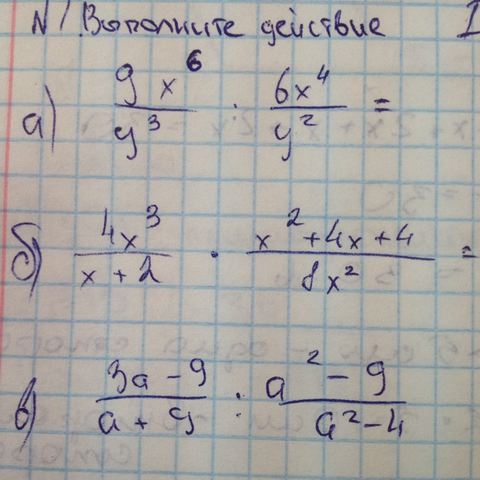 N1 Выполните действие 1
а) 9x⁶/y³ : 6x⁴/y² =
б) 4x³/(x+2) · (x²+4x+4)/(8x²) =
в) (3a-9)/(a+9) : (a²-9)/(a²-4)